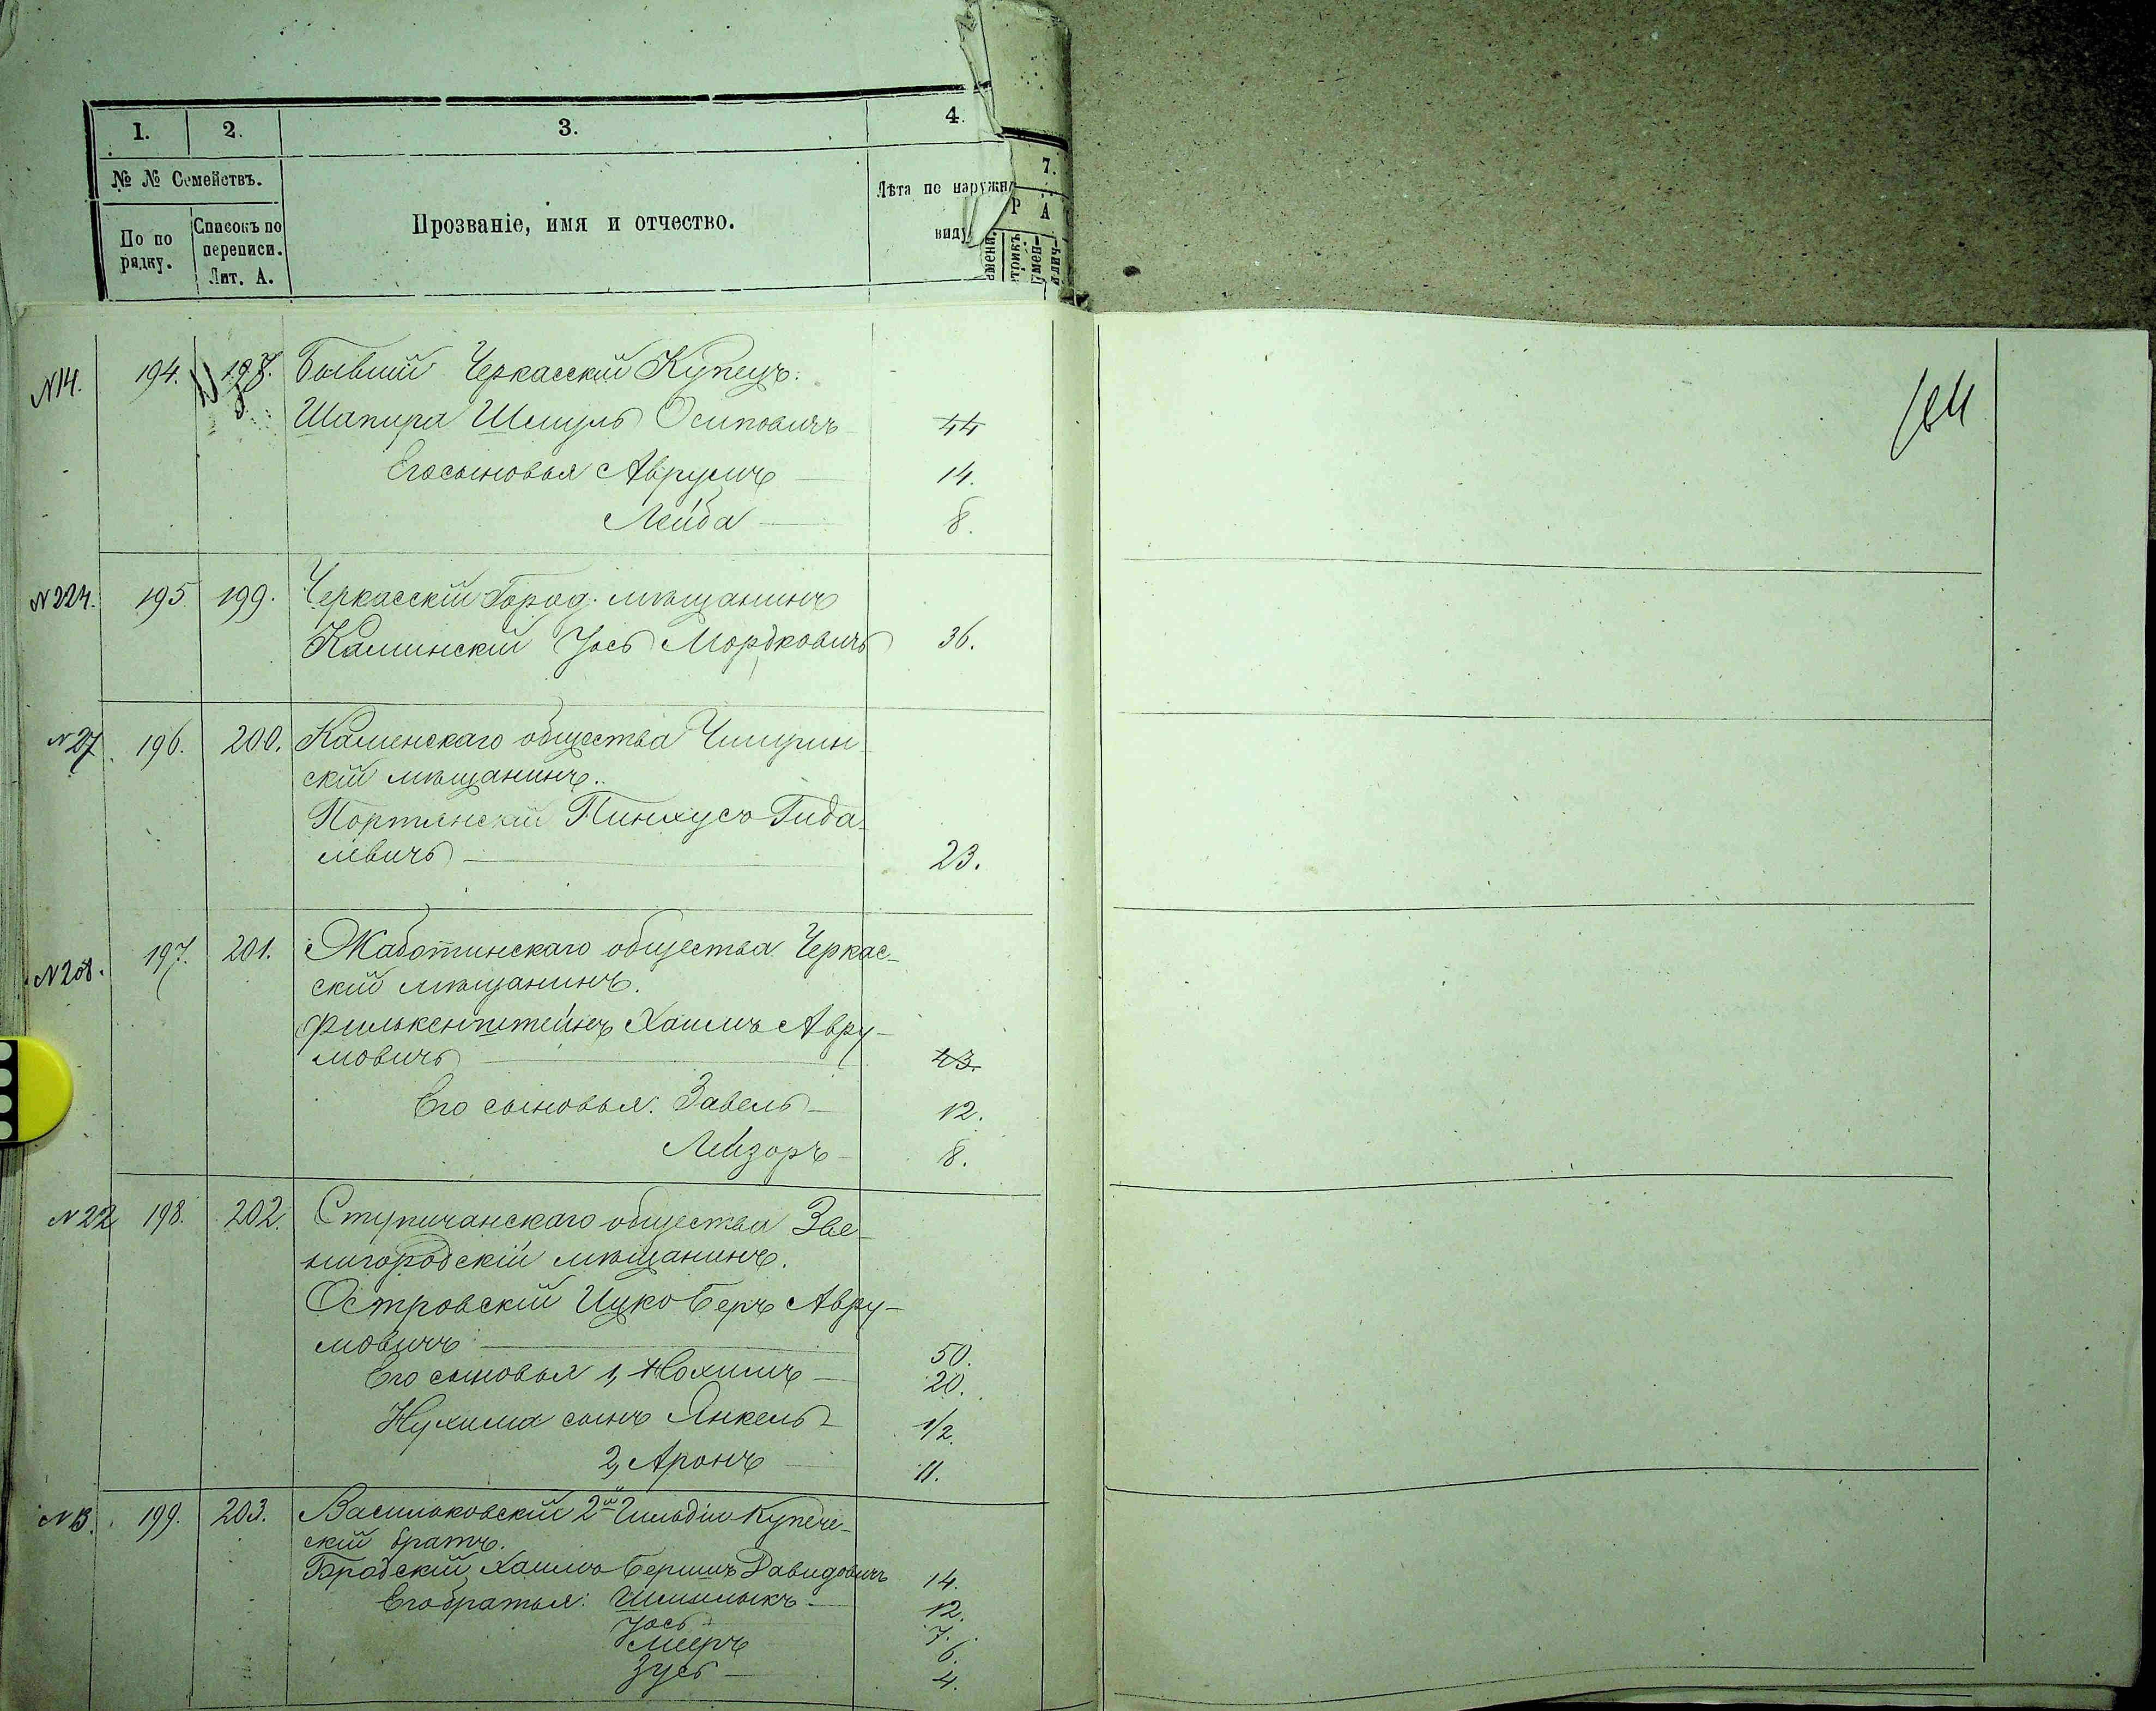 1. 2. 3. 4.
7.
№ № Семействъ.
По по рядку.
Списокъ по переписи. Лит. А.
Прозваніе, имя и отчество.
Лѣта по наружн
виду
Р А
N14. 194. Бывшій Черкасскій Купецъ.
Шапира Шмуль Осиповичъ 44
Его сыновья Аврумъ 14.
Лейба 8.
N224. 195 199. Черкасскій Город. мѣщанинъ
Каминскій Іось Мордковичъ 36.
N27. 196. 200. Каменскаго общества Чигирин-
скій мѣщанинъ.
Портянскій Пинхусъ Гида-
левичъ 23.
N208. 197. 201. Жаботинскаго общества Черкас-
скій мѣщанинъ.
Филькенштейнъ Хаимъ Авру-
мовичъ 43.
Его сыновья: Завель 12.
Лейзоръ 8.
N22 198. 202. Ступичанскаго общества Зве-
нигородскій мѣщанинъ.
Островскій Ицко Беръ Авру-
мовичъ 50.
Его сыновья 1, Нохимъ 20.
Нухима сынъ Янкель 1/2.
2, Аронъ 11.
N13. 199. 203. Васильковскій 2й Гильдіи Купече-
скій братъ.
Бродскій Хаимъ Бершъ Давидовичъ 14.
Его братья: Шмилыкъ 12.
Іось 7.
Мееръ 6.
Зусь 4.